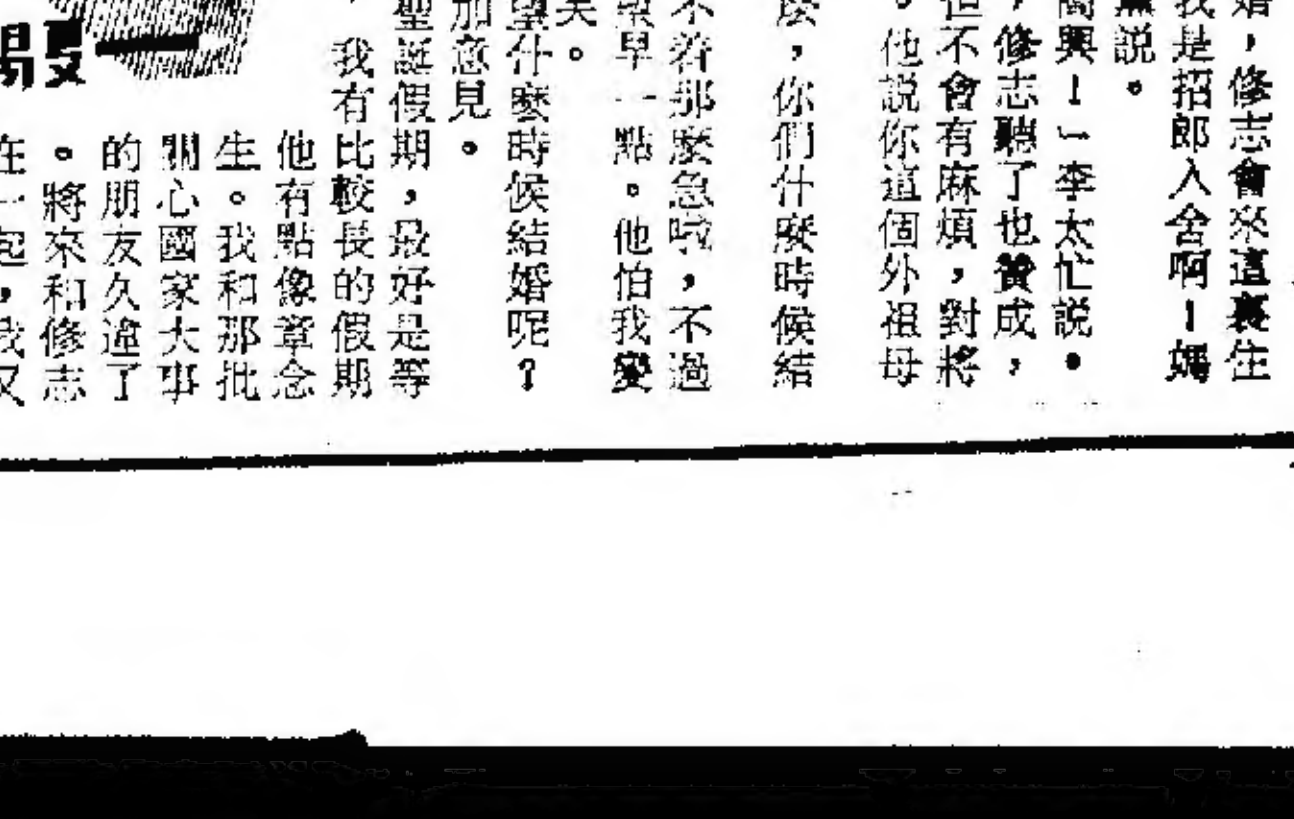 婚，修志會來這裏住
我是招郎入舍啊！媽
薰說。
高興！」李太忙說。
，修志聽了也贊成，
但不會有麻煩，對將
。他說你這個外祖母
麼，你們什麼時候結
不着那麼急哦，不過
早一點。他怕我變
矣。
望什麼時候結婚呢？
加意見。
聖誕假期，最好是等
，我有比較長的假期
他有點像章念
生。我和那批
關心國家大事
的朋友久違了
。將來和修志
在一起，我又